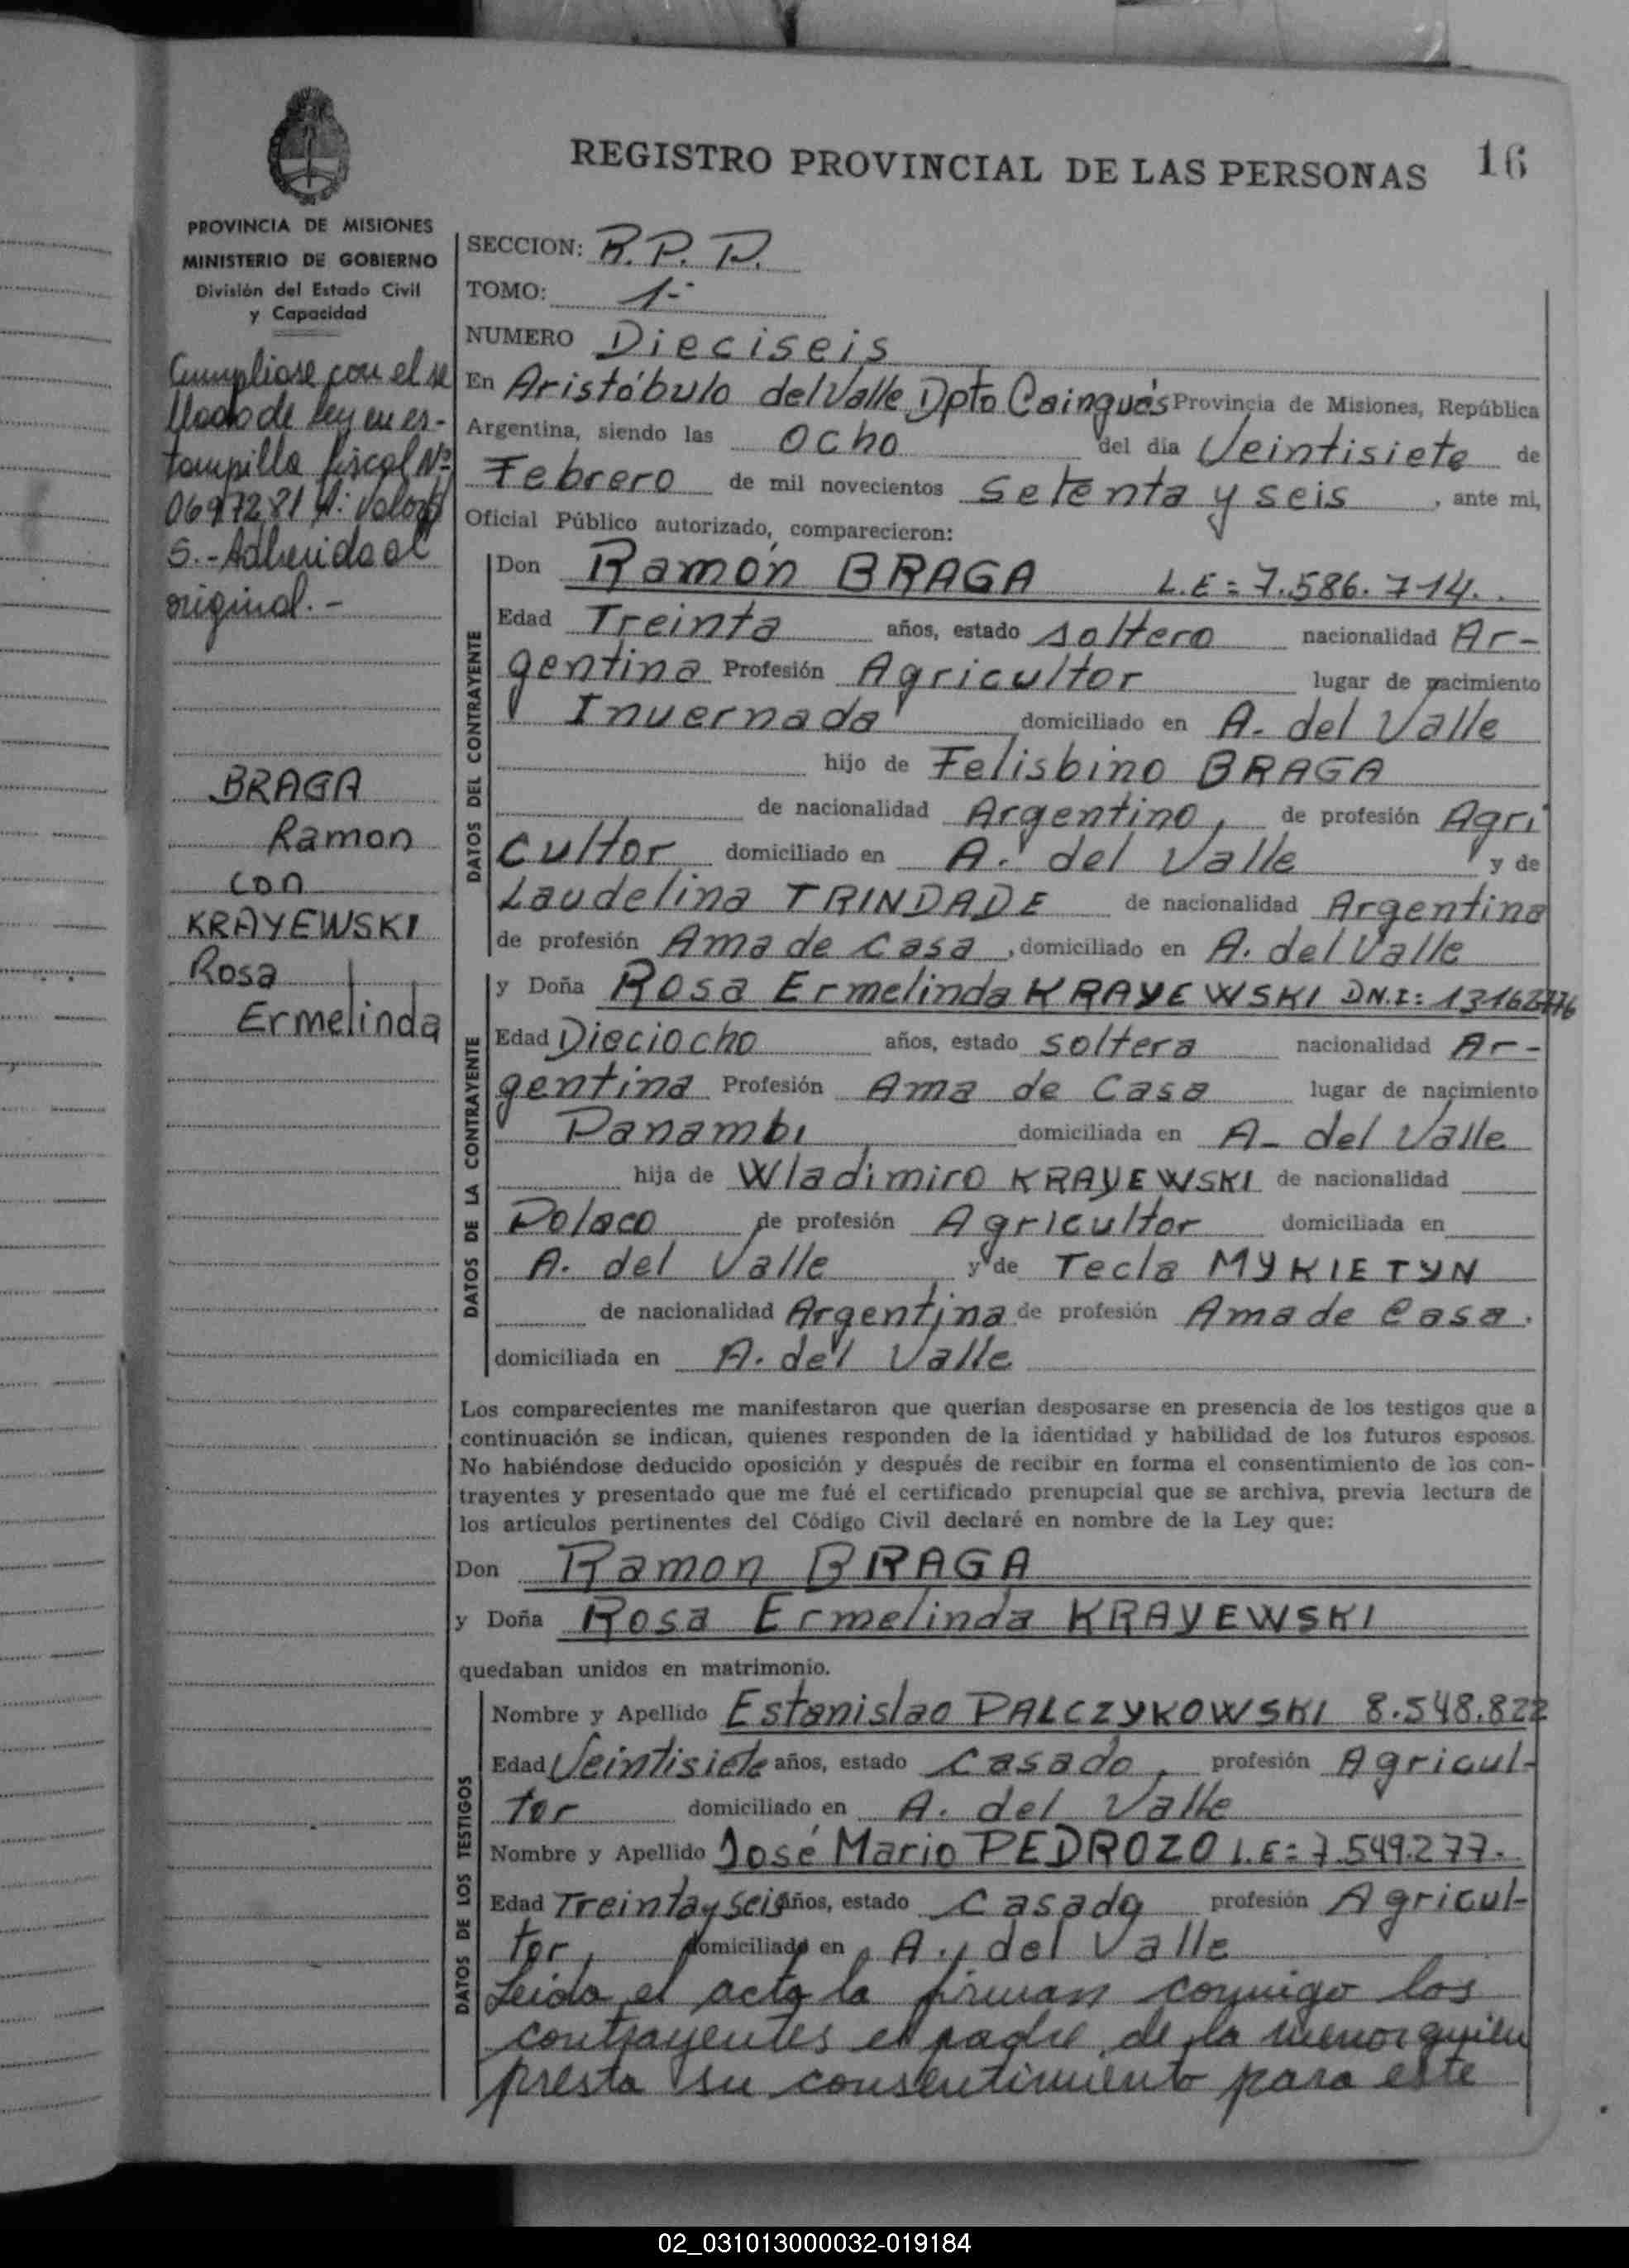 REGISTRO PROVINCIAL DE LAS PERSONAS 16
PROVINCIA DE MISIONES
MINISTERIO DE GOBIERNO
División del Estado Civil
y Capacidad
Cumpliose con el se
llado de ley en es-
tampilla fiscal Nº
0697281 A: valor $
5.- Adherida al
original.-
BRAGA
Ramon
con
KRAYEWSKI
Rosa
Ermelinda
SECCION: R.P.P.
TOMO: 1-
NUMERO Dieciseis
En Aristóbulo del Valle Dpto Cainguás Provincia de Misiones, República
Argentina, siendo las ocho del día Veintisiete de
Febrero de mil novecientos setenta y seis, ante mi,
Oficial Público autorizado, comparecieron:
DATOS DEL CONTRAYENTE
Don Ramón BRAGA L.E = 7.586.714.
Edad Treinta años, estado soltero nacionalidad Ar-
gentina Profesión Agricultor lugar de nacimiento
Invernada domiciliado en A. del Valle
hijo de Felisbino BRAGA
de nacionalidad Argentino, de profesión Agri
cultor domiciliado en A. del Valle y de
Laudelina TRINDADE de nacionalidad Argentina
de profesión Ama de casa, domiciliado en A. del Valle
DATOS DE LA CONTRAYENTE
y Doña Rosa Ermelinda KRAYEWSKI DN.I: 13162776
Edad Dieciocho años, estado soltera nacionalidad Ar-
gentina Profesión Ama de Casa lugar de nacimiento
Panambi domiciliada en A- del Valle
hija de Wladimiro KRAYEWSKI de nacionalidad
Polaco de profesión Agricultor domiciliada en
A. del Valle y de Tecla MYKIETYN
de nacionalidad Argentina de profesión Ama de Casa.
domiciliada en A. del Valle
Los comparecientes me manifestaron que querían desposarse en presencia de los testigos que a
continuación se indican, quienes responden de la identidad y habilidad de los futuros esposos.
No habiéndose deducido oposición y después de recibir en forma el consentimiento de los con-
trayentes y presentado que me fué el certificado prenupcial que se archiva, previa lectura de
los artículos pertinentes del Código Civil declaré en nombre de la Ley que:
Don Ramon BRAGA
y Doña Rosa Ermelinda KRAYEWSKI
quedaban unidos en matrimonio.
DATOS DE LOS TESTIGOS
Nombre y Apellido Estanislao PALCZYKOWSKI 8.548.822
Edad Veintisiete años, estado casado, profesión Agricul-
tor domiciliado en A. del Valle
Nombre y Apellido José Mario PEDROZO L.E = 7.549.277.
Edad Treinta y seis años, estado casado profesión Agricul-
tor, domiciliado en A. del Valle
Leida el acta la firman conmigo los
contrayentes el padre de la menor quien
presta su consentimiento para este
02_031013000032-019184